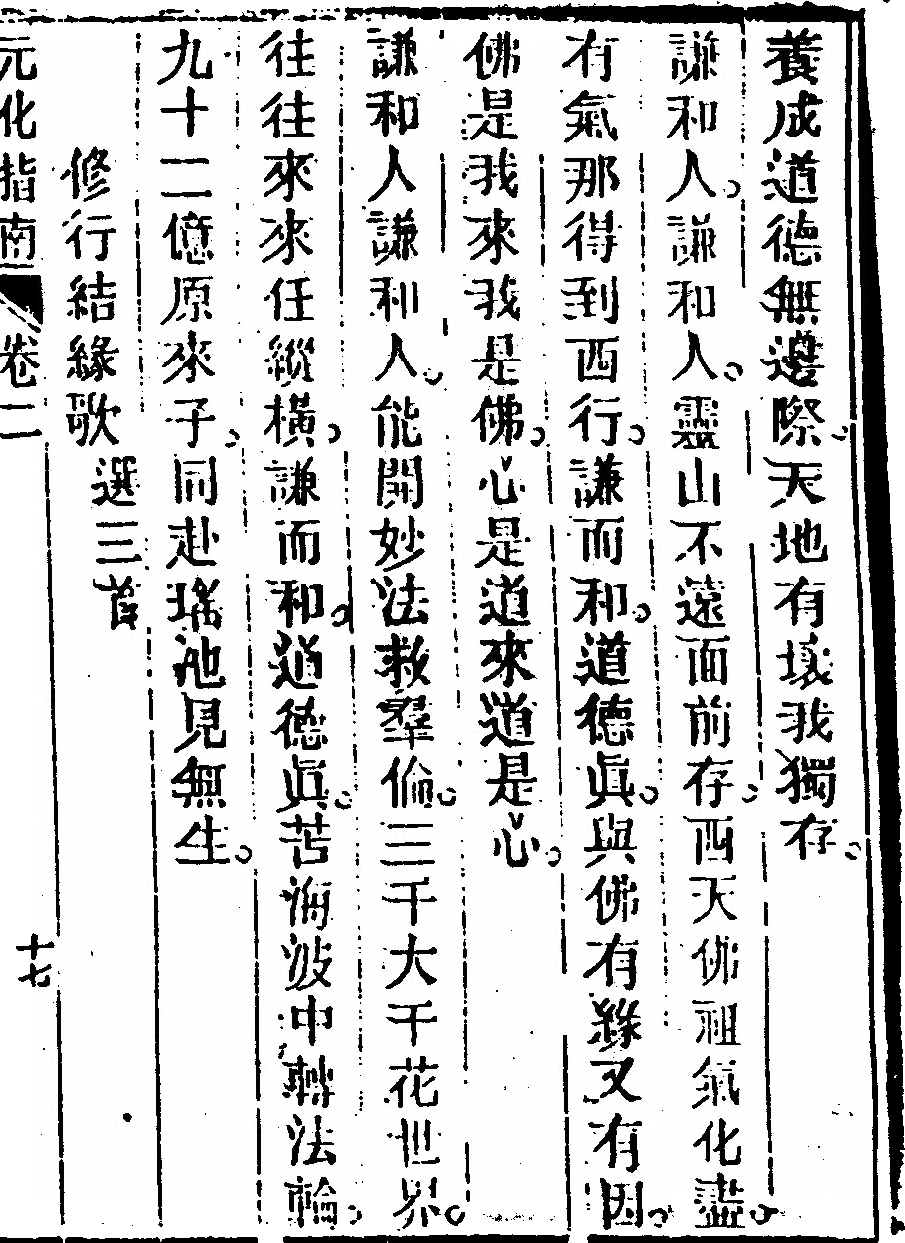 養成道德無邊際天地有壞我獨存。
謙和人。謙和人。靈山不遠面前存。西天佛祖氣化盡。
有氣那得到西行。謙而和。道德眞。與佛有緣又有因。
佛是我來我是佛。心是道來道是心。
謙和人謙和人。能開妙法救羣倫。三千大千花世界。
往往來來任縱橫。謙而和。道德眞。苦海波中轉法輪。
九十二億原來子。同赴瑤池見無生。
修行結緣歌 選三首
元化指南 卷二 十七